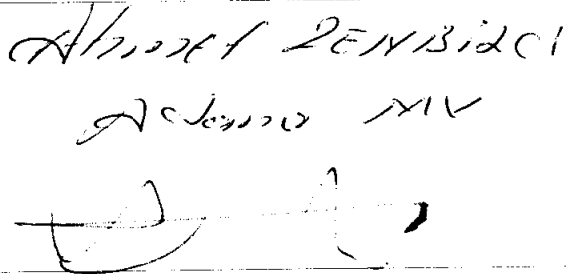 Ahmet ZENBİLCİ
Adana MV